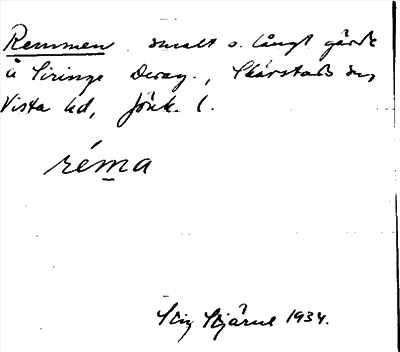 Remmen smalt o. långt gärde
å Siringe Deray., Skärstads sn,
Vista hd, Jönk. l.
réma
Stig Stjärne 1934.